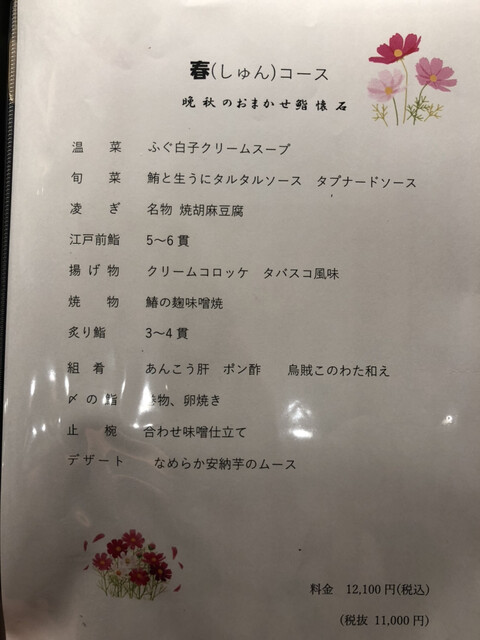 春(しゅん)コース
晩秋のおまかせ鮨懐石
温菜 ふぐ白子クリームスープ
旬菜 鮪と生うにタルタルソース タプナードソース
凌ぎ 名物 焼胡麻豆腐
江戸前鮨 5～6貫
揚げ物 クリームコロッケ タバスコ風味
焼物 鰆の麹味噌焼
炙り鮨 3～4貫
組肴 あんこう肝 ポン酢 烏賊このわた和え
〆の鮨 巻物、卵焼き
止椀 合わせ味噌仕立て
デザート なめらか安納芋のムース
料金 12,100円(税込)
(税抜 11,000円)